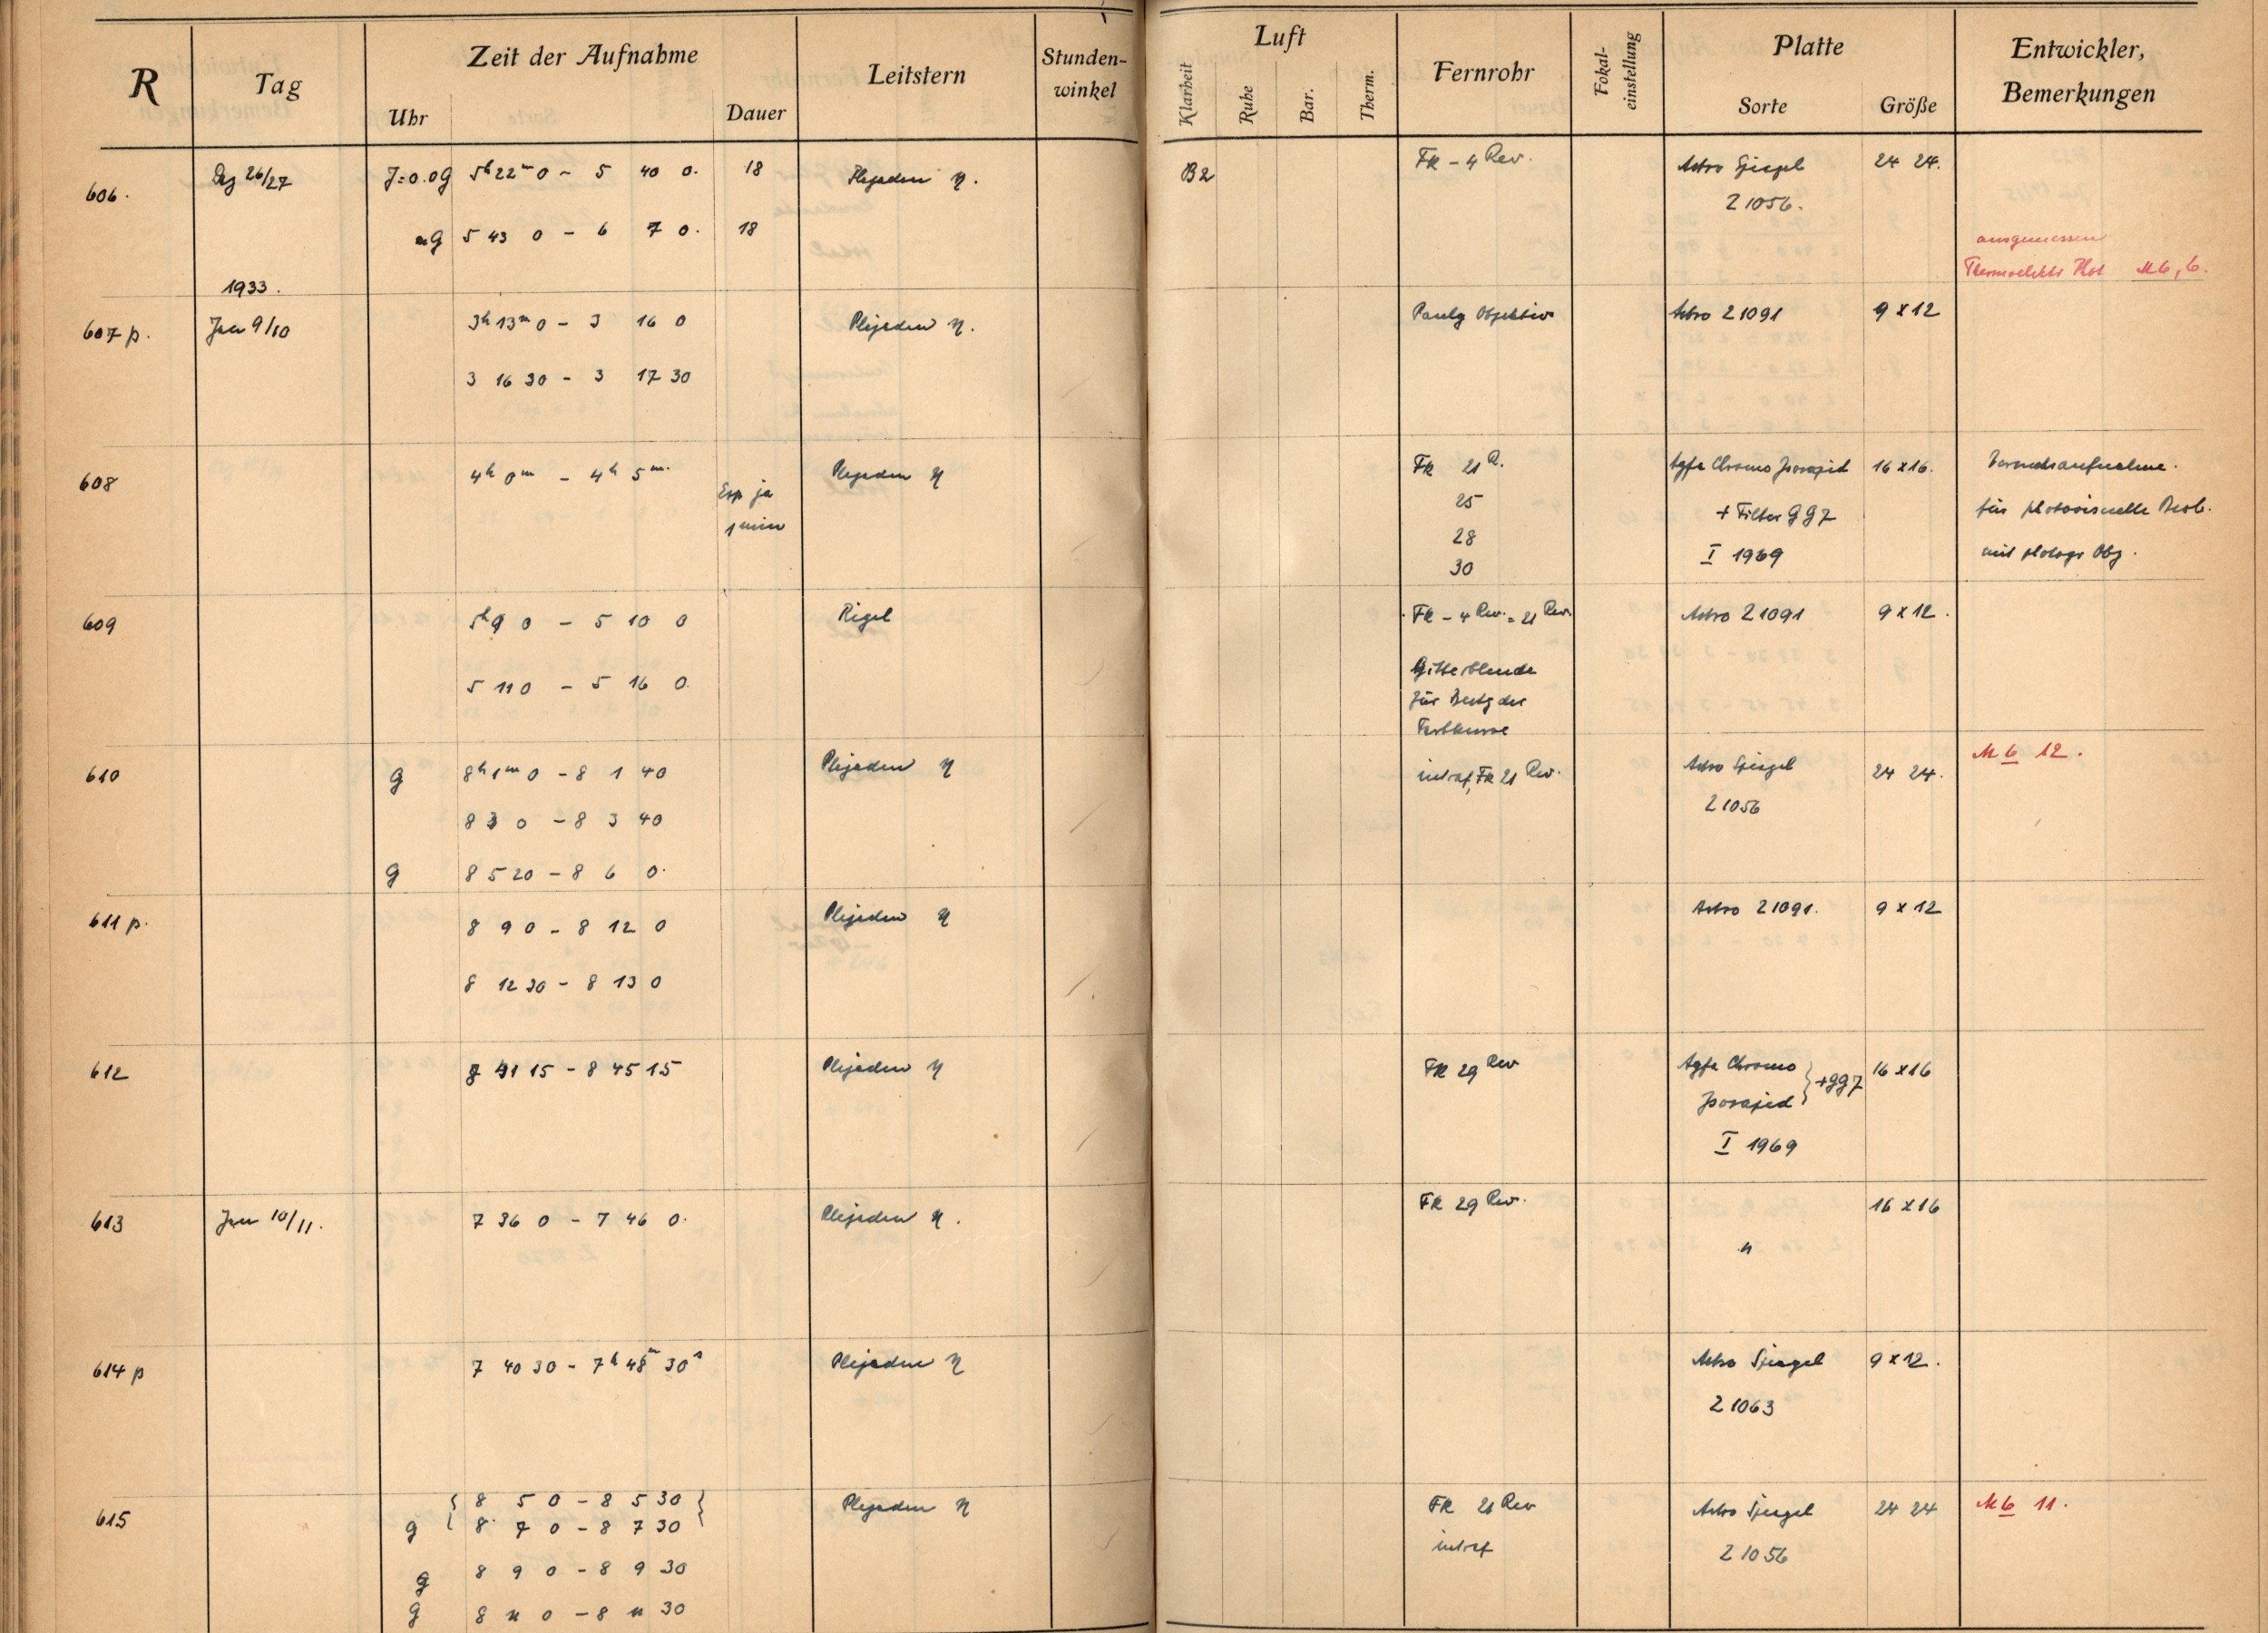 R Tag Zeit der Aufnahme Leitstern Stunden-winkel Luft Fernrohr Fokal-einstellung Platte Entwickler, Bemerkungen
Uhr Dauer Klarheit Ruhe Bar. Therm. Sorte Größe
606. Dez 26/27 J=0.0g 5h22m0 - 5 40 0. 18 Plejaden η. B2 Fk - 4 Rev. Astro Spiegel 24 24.
Z 1056.
g 5 43 0 - 6 7 0. 18
ausgemessen
Thermoelektr Phot M6, 6.
1933.
607 p. Jan 9/10 3h13m0 - 3 16 0 Plejaden η. Pauly Objektiv Astro Z1091 9x12
3 16 30 - 3 17 30
608 4h 0m - 4h 5m. Exp je Plejaden η Fk 21 R. Agfa Chromo Isorapid 16x16. Versuchsaufnahme.
1 min 25 + Filter GG7 für photovisuelle Beob.
28 I 1969 mit photogr Obj.
30
609 5h9 0 - 5 10 0 Rigel Fk - 4 Rev. = 21 Rev. Astro Z1091 9x12.
5 11 0 - 5 16 0. Gitterblende
für Bestg der
Farbkurve
610 g 8h1m0 - 8 1 40 Plejaden η intraf, Fk 21 Rev. Astro Spiegel 24 24. M 6 12.
8 3 0 - 8 3 40 Z1056
g 8 5 20 - 8 6 0.
611 p. 8 9 0 - 8 12 0 Plejaden η Astro Z1091. 9x12
8 12 30 - 8 13 0
612 8 41 15 - 8 45 15 Plejaden η Fk 29 Rev Agfa Chromo +GG7 16x16
Isorapid
I 1969
613 Jan 10/11. 7 36 0 - 7 46 0. Plejaden η. Fk 29 Rev. " 16x16
614 p 7 40 30 - 7h 48m 30s Plejaden η Astro Spiegel 9x12.
Z1063
615 { 8 5 0 - 8 5 30 } Plejaden η Fk 21 Rev Astro Spiegel 24 24 M 6 11.
g 8 7 0 - 8 7 30 intraf Z1056
g 8 9 0 - 8 9 30
g 8 11 0 - 8 11 30